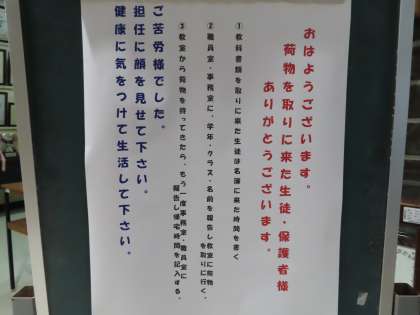 おはようございます。
荷物を取りに来た生徒・保護者様
ありがとうございます。
①教科書類を取りに来た生徒は名簿に来た時間を書く
②職員室・事務室に、学年・クラス・名前を報告し教室に荷物
を取りに行く。
③教室から荷物を持ってきたら、もう一度事務室・職員室に
報告し帰宅時間を記入する。
ご苦労様でした。
担任に顔を見せて下さい。
健康に気をつけて生活して下さい。